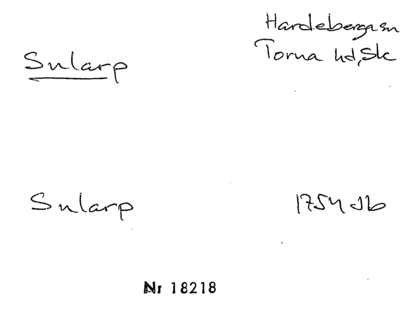 Sularp
Hardeberga sn
Torna hd, Sk
Sularp
1754 Jb
Nr 18218